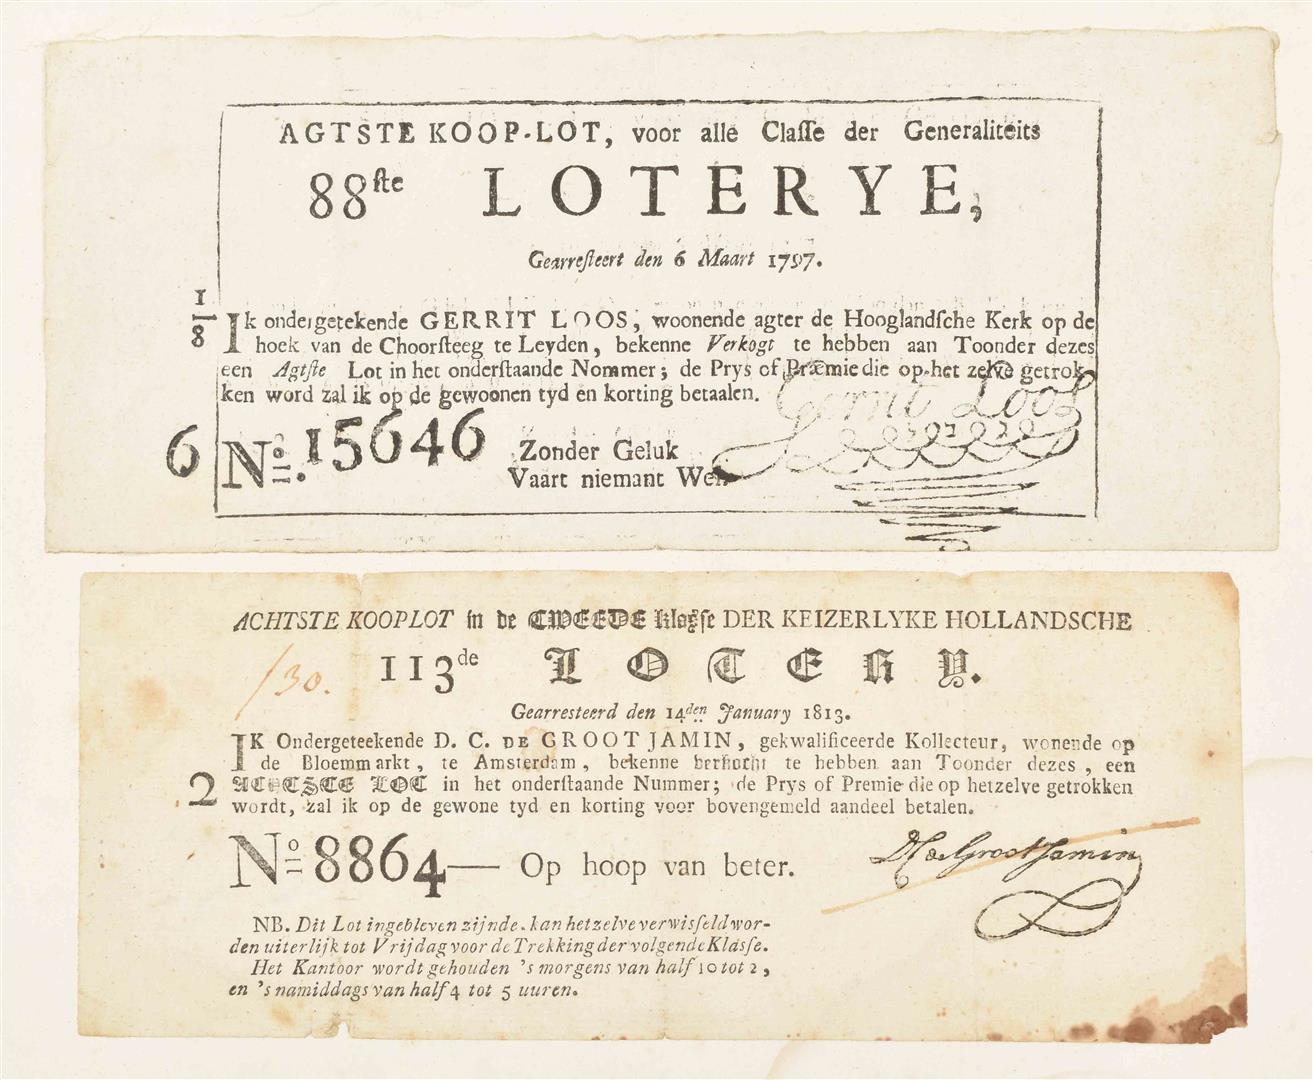 AGTSTE KOOP-LOT, voor alle Claſſe der Generaliteits
88ſte LOTERYE,
Gearreſteert den 6 Maart 1797.
1/8
Ik ondergetekende GERRIT LOOS, woonende agter de Hooglandſche Kerk op de
hoek van de Choorſteeg te Leyden, bekenne Verkogt te hebben aan Toonder dezes
een Agtſte Lot in het onderſtaande Nommer; de Prys of Præmie die op het zelve getrok-
ken word zal ik op de gewoonen tyd en korting betaalen.
Gerrit Loos
6 No. 15646 Zonder Geluk
Vaart niemant Wel
ACHTSTE KOOPLOT in de TWEEDE klaſſe DER KEIZERLYKE HOLLANDSCHE
113de LOTERY.
/30.
Gearresteerd den 14den January 1813.
IK Ondergeteekende D. C. DE GROOT JAMIN, gekwalificeerde Kollecteur, wonende op
de Bloemmarkt, te Amsterdam, bekenne verkocht te hebben aan Toonder dezes, een
2 ACHTSTE LOT in het onderſtaande Nummer; de Prys of Premie die op hetzelve getrokken
wordt, zal ik op de gewone tyd en korting voor bovengemeld aandeel betalen.
No 8864— Op hoop van beter.
DC de Groot Jamin
NB. Dit Lot ingebleven zijnde, kan hetzelve verwisſeld wor-
den uiterlijk tot Vrijdag voor de Trekking der volgende Klasſe.
Het Kantoor wordt gehouden 's morgens van half 10 tot 2,
en 's namiddags van half 4 tot 5 uuren.